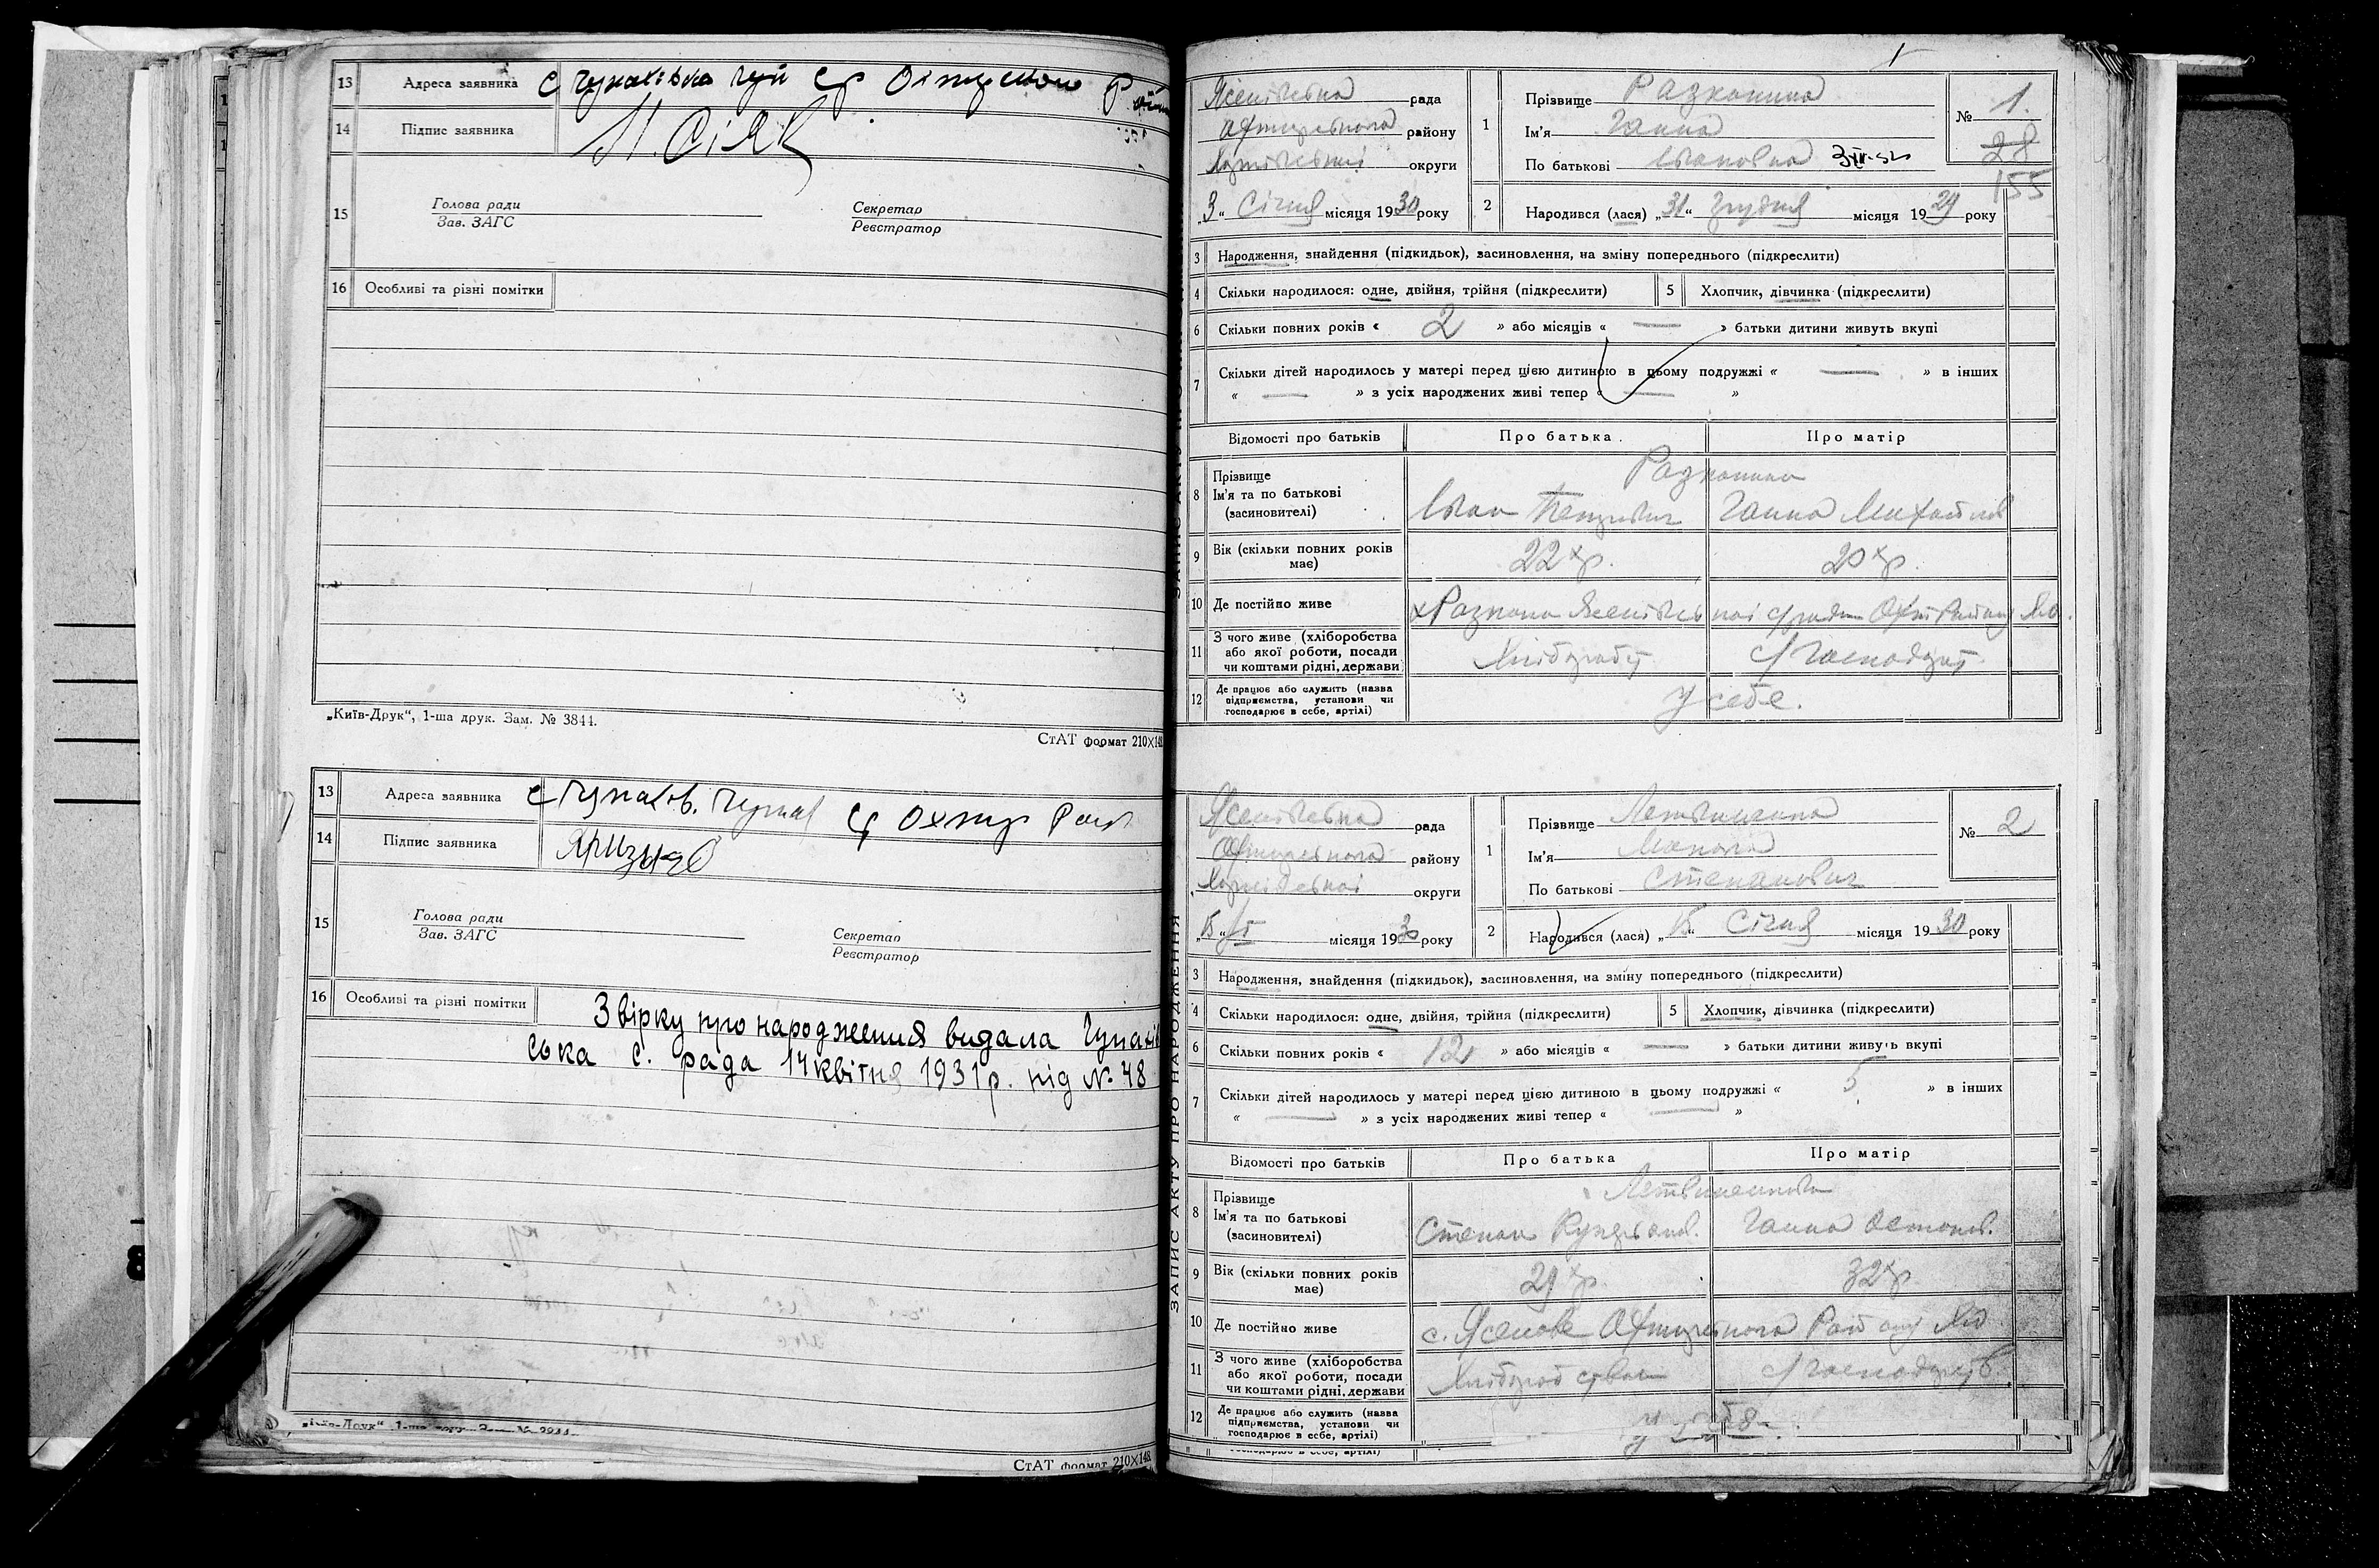 13 Адреса заявника с Чупахівка Чуп ср Охтирского Р
14 Підпис заявника М. Сіяк
15 Голова ради Секретар
Зав. ЗАГС Реєстратор
16 Особливі та різні помітки
„Київ-Друк“, 1-ша друк. Зам. № 3844.
СтАТ формат 210×148
13 Адреса заявника с Чупахів. Чупах ср Охтир Рай
14 Підпис заявника
15 Голова ради Секретар
Зав. ЗАГС Реєстратор
16 Особливі та різні помітки Звірку про народження видала Чупахів
ська с. рада 14 квітня 1931 р. під № 48
СтАТ формат 210×148
Ясенівська рада
Охтирського району
Харківської округи
„3“ Січня місяця 1930 року
1 Прізвище
Ім'я Ганна
По батькові Івановна
№ 1.
28
155
2 Народився (лася) „31“ Грудня місяця 1929 року
3 Народження, знайдення (підкидьок), засиновлення, на зміну попереднього (підкреслити)
4 Скільки народилося: одне, двійня, трійня (підкреслити) 5 Хлопчик, дівчинка (підкреслити)
6 Скільки повних років « 2 » або місяців « — » батьки дитини живуть вкупі
7 Скільки дітей народилось у матері перед цією дитиною в цьому подружжі « — » в інших
« — » з усіх народжених живі тепер « — »
Відомості про батьків Про батька Про матір
8 Прізвище
Ім'я та по батькові
(засиновителі)
Іван Ганна Михайлов
9 Вік (скільки повних років 22 20
має)
10 Де постійно живе
11 З чого живе (хліборобства
або якої роботи, посади
чи коштами рідні, держави)
12 Де працює або служить (назва
підприємства, установи чи
господарює в себе, артілі)
У себе.
ЗАПИС АКТУ ПРО НАРОДЖЕННЯ
Ясенівська рада
Охтирського району
Харківської округи
„15“ I місяця 1930 року
1 Прізвище
Ім'я Микола
По батькові Степанович
№ 2
2 Народився (лася) „15“ Січня місяця 1930 року
3 Народження, знайдення (підкидьок), засиновлення, на зміну попереднього (підкреслити)
4 Скільки народилося: одне, двійня, трійня (підкреслити) 5 Хлопчик, дівчинка (підкреслити)
6 Скільки повних років « 12 » або місяців « — » батьки дитини живуть вкупі
7 Скільки дітей народилось у матері перед цією дитиною в цьому подружжі « 5 » в інших
« — » з усіх народжених живі тепер « — »
Відомості про батьків Про батька Про матір
8 Прізвище
Ім'я та по батькові
(засиновителі)
Степан Ганна Остапов.
9 Вік (скільки повних років 32
має)
10 Де постійно живе с. Ясенове Охтирського Району
11 З чого живе (хліборобства
або якої роботи, посади
чи коштами рідні, держави
12 Де працює або служить (назва
підприємства, установи чи
господарює в себе, артілі)